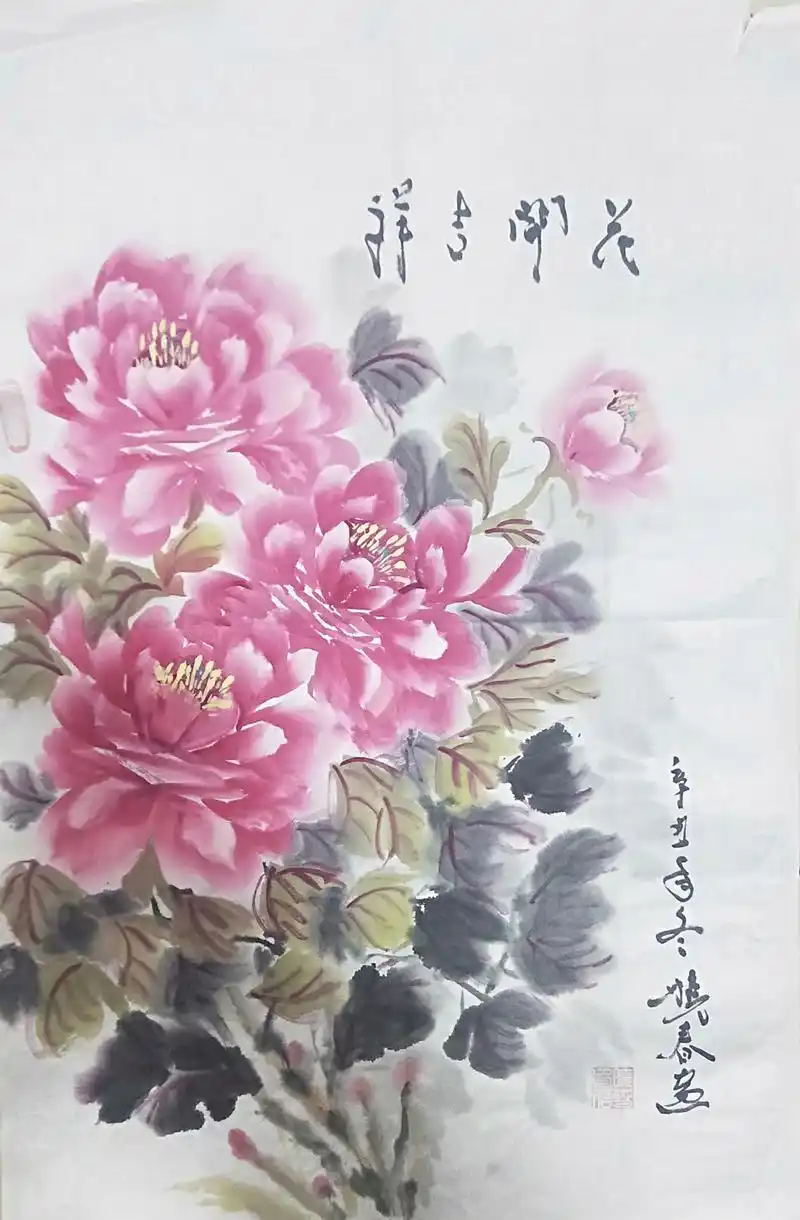 花開吉祥
辛丑年冬曉春画